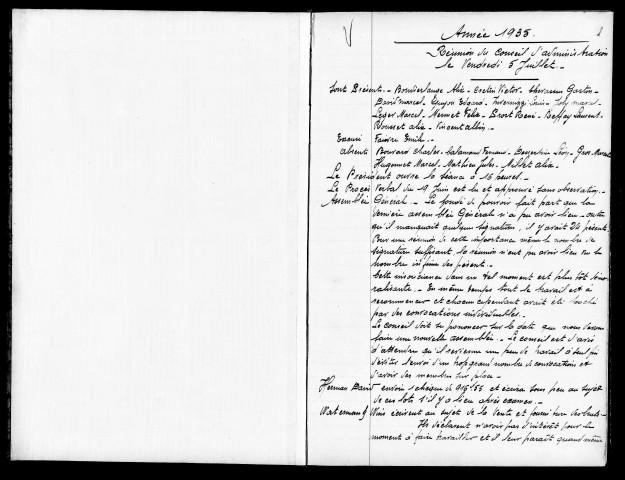 Année 1935.
Réunion du Conseil d'administration
le Vendredi 5 Juillet.
Sont Présents. - Bourderlange Alix - Victor - Gaston -
David Marcel - Guyon Edgard - Louis - Joly Marcel -
Leger Marcel - Mermet Felix - Prost René - Beffay Laurent -
alix - Vincent albin.
Excusé Faivre Emile. -
absents Bouvard Charles - Salamand Fernand - Léon - Gros Marcel
Hugonnet Marcel - Mathieu Jules - Millet alix -
Le Président ouvre la séance à 15 heures. -
Le Procès Verbal du 19 Juin est lu et approuvé sans observation. -
Assemblée Générale. - Le fondé de pouvoir fait part que la
dernière assemblée Générale n'a pu avoir lieu - outre
qu'il manquait quelques signatures, il y avait 24 présents.
Pour une réunion de cette importance même le nombre de
signature suffisant, la réunion n'eut pu avoir lieu vu le
nombre infime des présents. -
Cette insouciance dans un tel moment est plus tôt démo-
ralisante. - En même temps tout le travail est à
recommencer et chacun cependant avait été touché
par des convocations individuelles.
Le Conseil doit se prononcer sur la date que nous devons
faire une nouvelle assemblée. - Le conseil est d'avis
d'attendre qu'il revienne un peu de travail à seul fin
d'éviter l'envoi d'un trop grand nombre de convocations et
d'avoir des membres sur place -
Herman David envoie 1 chèque de 915,55 et écrira sous peu au sujet
de ces lots s'il y a lieu après examen. -
Waterman Nous écrivent au sujet de la Vente et fourniture des bruts -
Ils déclarent n'avoir pas d'intérêt pour le
moment à faire travailler et il leur paraît quand même